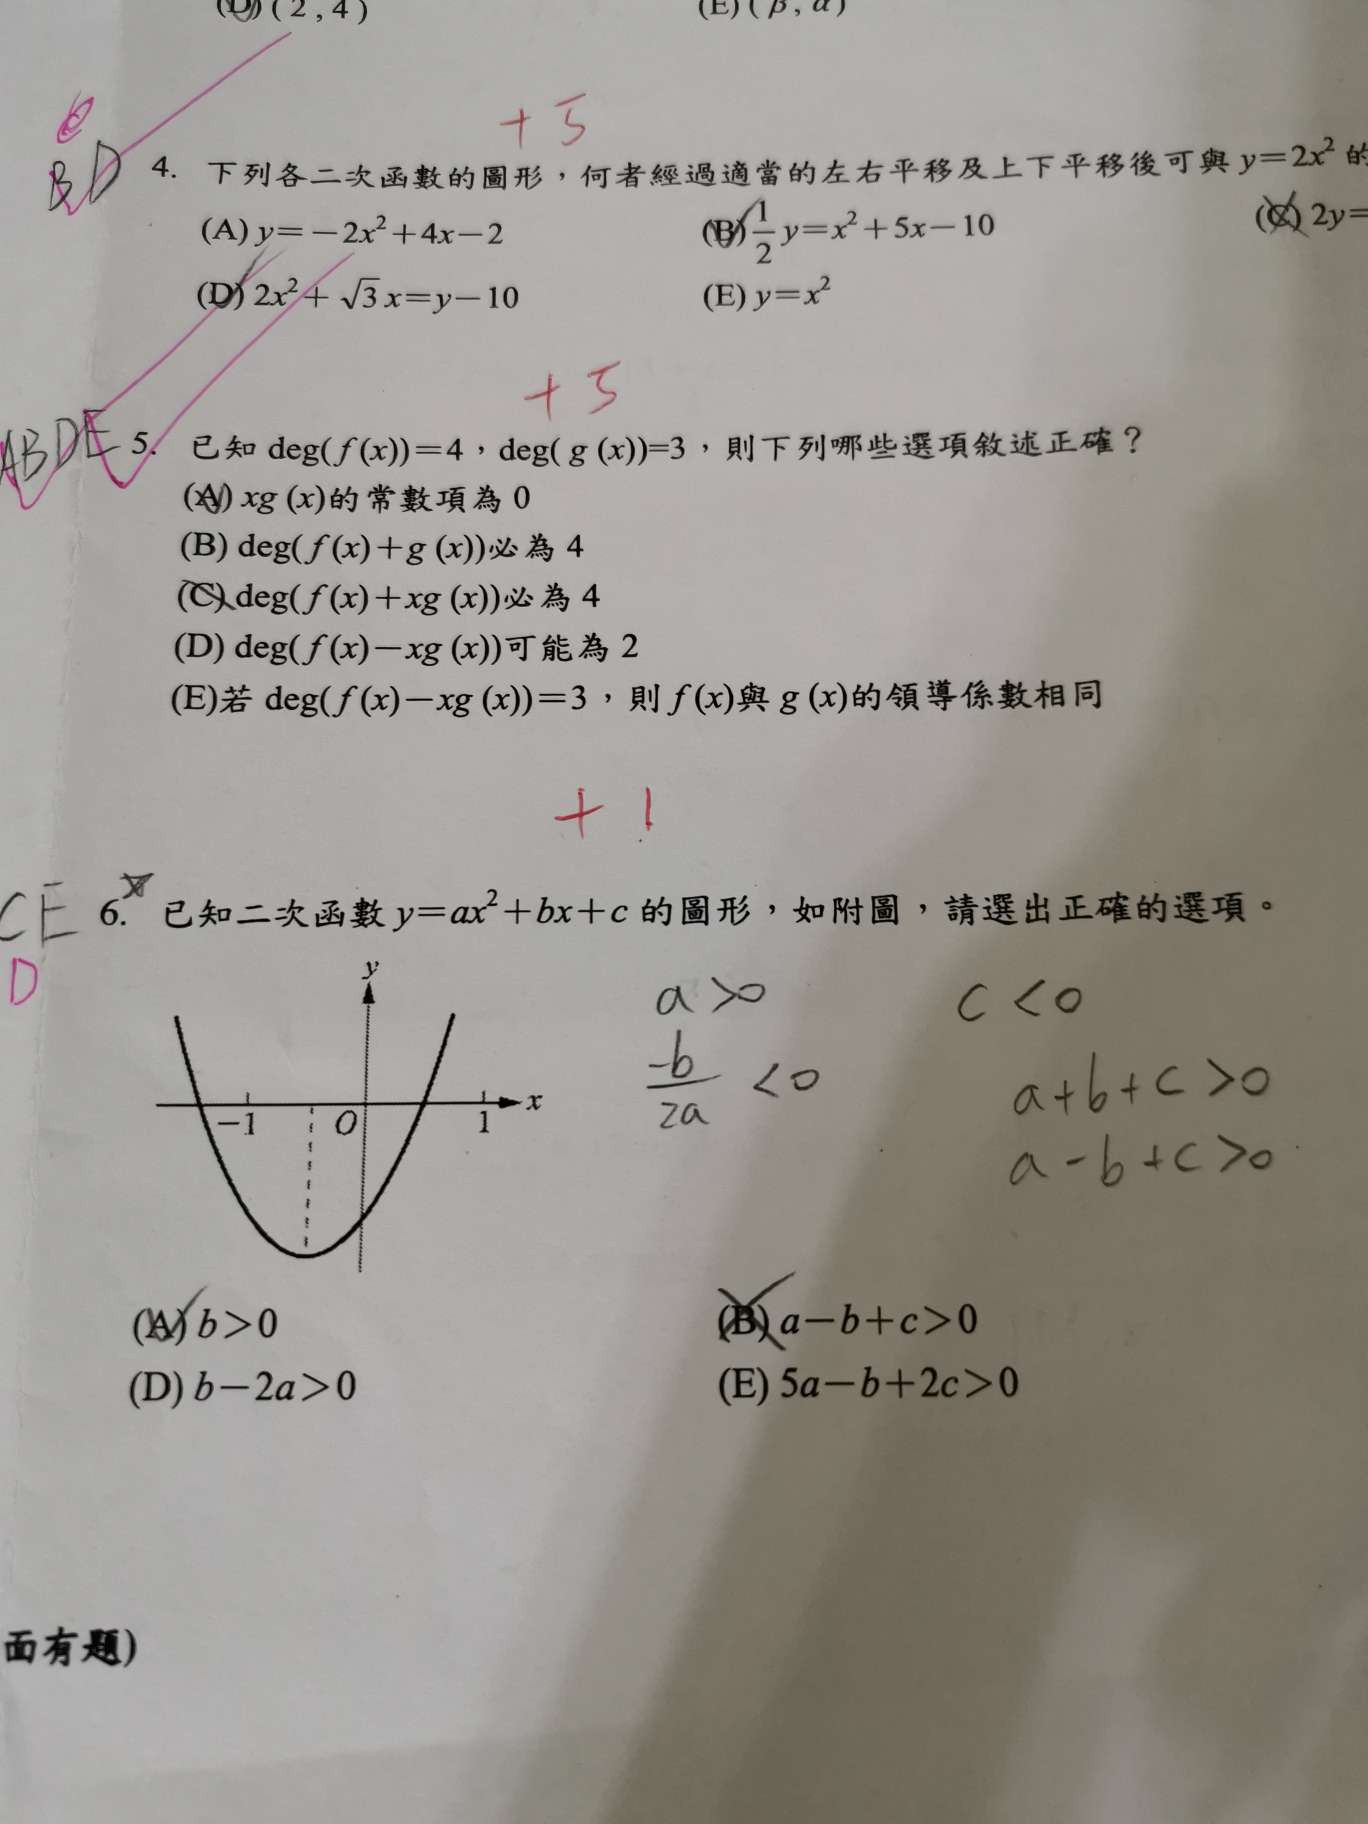 (D) ( 2 , 4 )
(E) ( β , α )
+5
BD 4. 下列各二次函數的圖形，何者經過適當的左右平移及上下平移後可與 y=2x² 的
(A) y=−2x²+4x−2
(B) 1/2 y=x²+5x−10
(C) 2y=
(D) 2x²+√3x=y−10
(E) y=x²
+5
ABDE 5. 已知 deg( f (x))=4，deg( g (x))=3，則下列哪些選項敘述正確？
(A) xg (x)的常數項為 0
(B) deg( f (x)+g (x))必為 4
(C) deg( f (x)+xg (x))必為 4
(D) deg( f (x)−xg (x))可能為 2
(E)若 deg( f (x)−xg (x))=3，則 f (x)與 g (x)的領導係數相同
+1
CE 6. 已知二次函數 y=ax²+bx+c 的圖形，如附圖，請選出正確的選項。
D
y
−1 O 1 x
a>0
-b/2a <0
c<0
a+b+c>0
a-b+c>0
(A) b>0
(B) a−b+c>0
(D) b−2a>0
(E) 5a−b+2c>0
面有題)